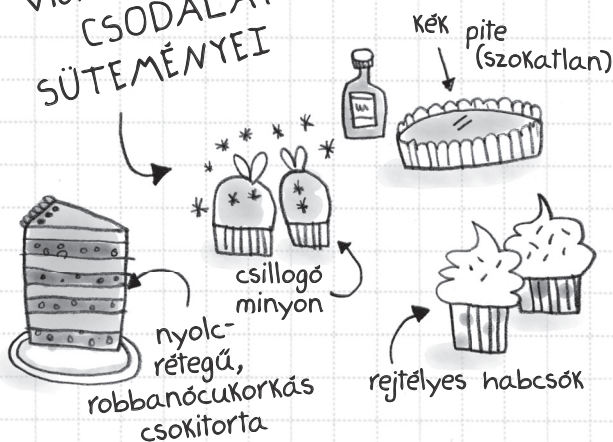 CSODÁLAT
SÜTEMÉNYEI
kék pite
(szokatlan)
csillogó
minyon
nyolc-
rétegű,
robbanócukorkás
csokitorta
rejtélyes habcsók